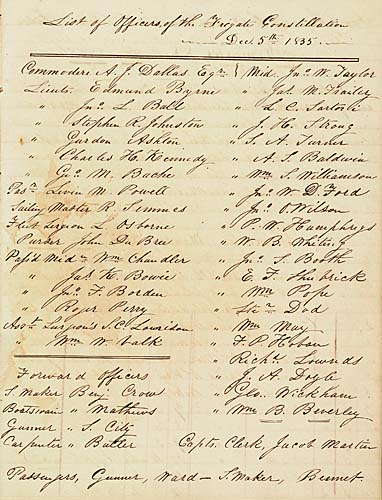 List of Officers of the Frigate Constellation
Dec 5th 1835
Commodore A. J. Dallas Esqr
Lieut. Edmund Byrne
" Jno. L. Ball
" Stephen R. Johnston
" Gurdon Ashton
" Charles H. Kennedy
" Geo. M. Bache
Levin M. Powell
Sailing Master R. Semmes
Fleet Surgeon L. Osborne
Purser John De Bree
Pass'd Mid. Wm Chandler
" Jas. K. Bowie
" Jno. F. Borden
" Roger Perry
Asst. Surgeon S. C. Lourason
" Wm W. Valk
Forward Officers
S. Maker Benj. Crow
Boatswain " Mathews
Gunner " S. City
Carpenter " Butler
Mid. Jno. W. Taylor
" Jas. M. Frailey
" L. C. Sartori
" J. H. Strong
" S. A. Turner
" A. S. Baldwin
" Wm S. Williamson
" Jno. W. D. Ford
" Jno. O. Wilson
" P. W. Humphreys
" W. B. Whiting
" Jno. S. Booth
" E. T. Shubrick
" Wm Pope
" Dod
" Wm May
" F. P. Hoban
" Richd. Lownds
" J. A. Doyle
" Geo. Wickham
" Wm B. Beverley
Capts. Clerk, Jacob Martin
Passengers, Gunner, Ward - S. Maker, Bennet.